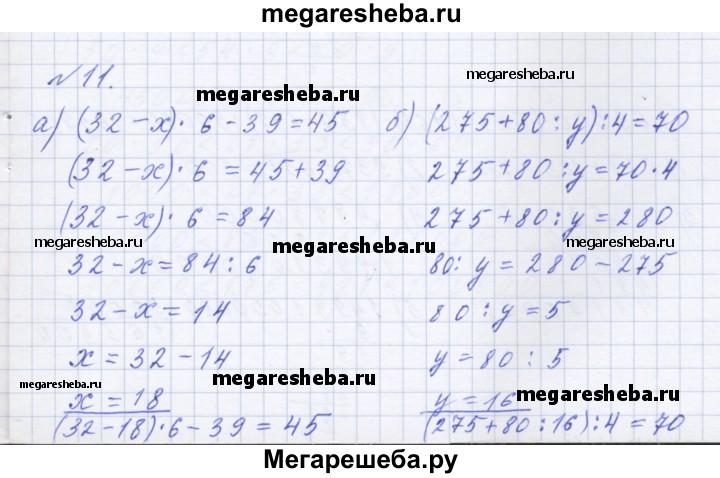 megaresheba.ru
№11.
megaresheba.ru
megaresheba.ru
а) (32-x)·6-39=45
(32-x)·6=45+39
(32-x)·6=84
megaresheba.ru
megaresheba.ru
32-x=84:6
32-x=14
x=32-14
megaresheba.ru
megaresheba.ru
x=18
(32-18)·6-39=45
б) (275+80:y):4=70
275+80:y=70·4
275+80:y=280
megaresheba.ru
80:y=280-275
80:y=5
y=80:5
megaresheba.ru
y=16
(275+80:16):4=70
Мегарешеба.ру